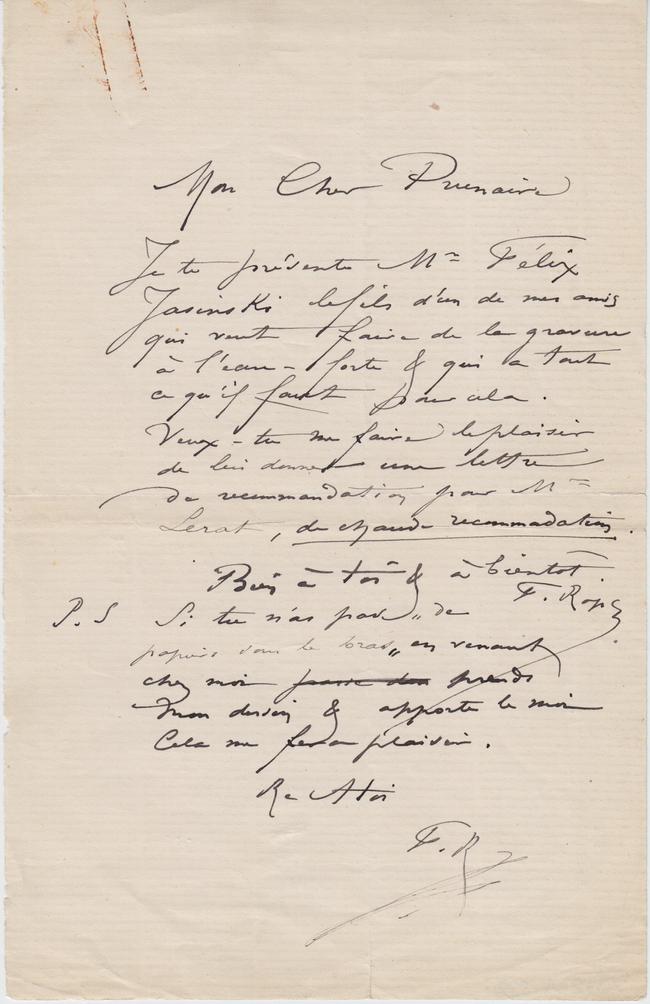 Mon Cher Prunaire
Je te présente Mr Félix
Jasinski le fils d'un de mes amis
qui veut faire de la gravure
à l'eau-forte & qui a tout
ce qu'il faut pour cela.
Veux-tu me faire le plaisir
de lui donner une lettre
de recommandation pour Mr
Lerat, de chaude recommadation.
Bien à toi & à bientôt
F. Rops
P.S Si tu n'as pas „ de
papiers sous le bras „ en venant
chez moi passe don prends
mon dessin & apporte le moi
Cela me fera plaisir.
Re A toi
F. R